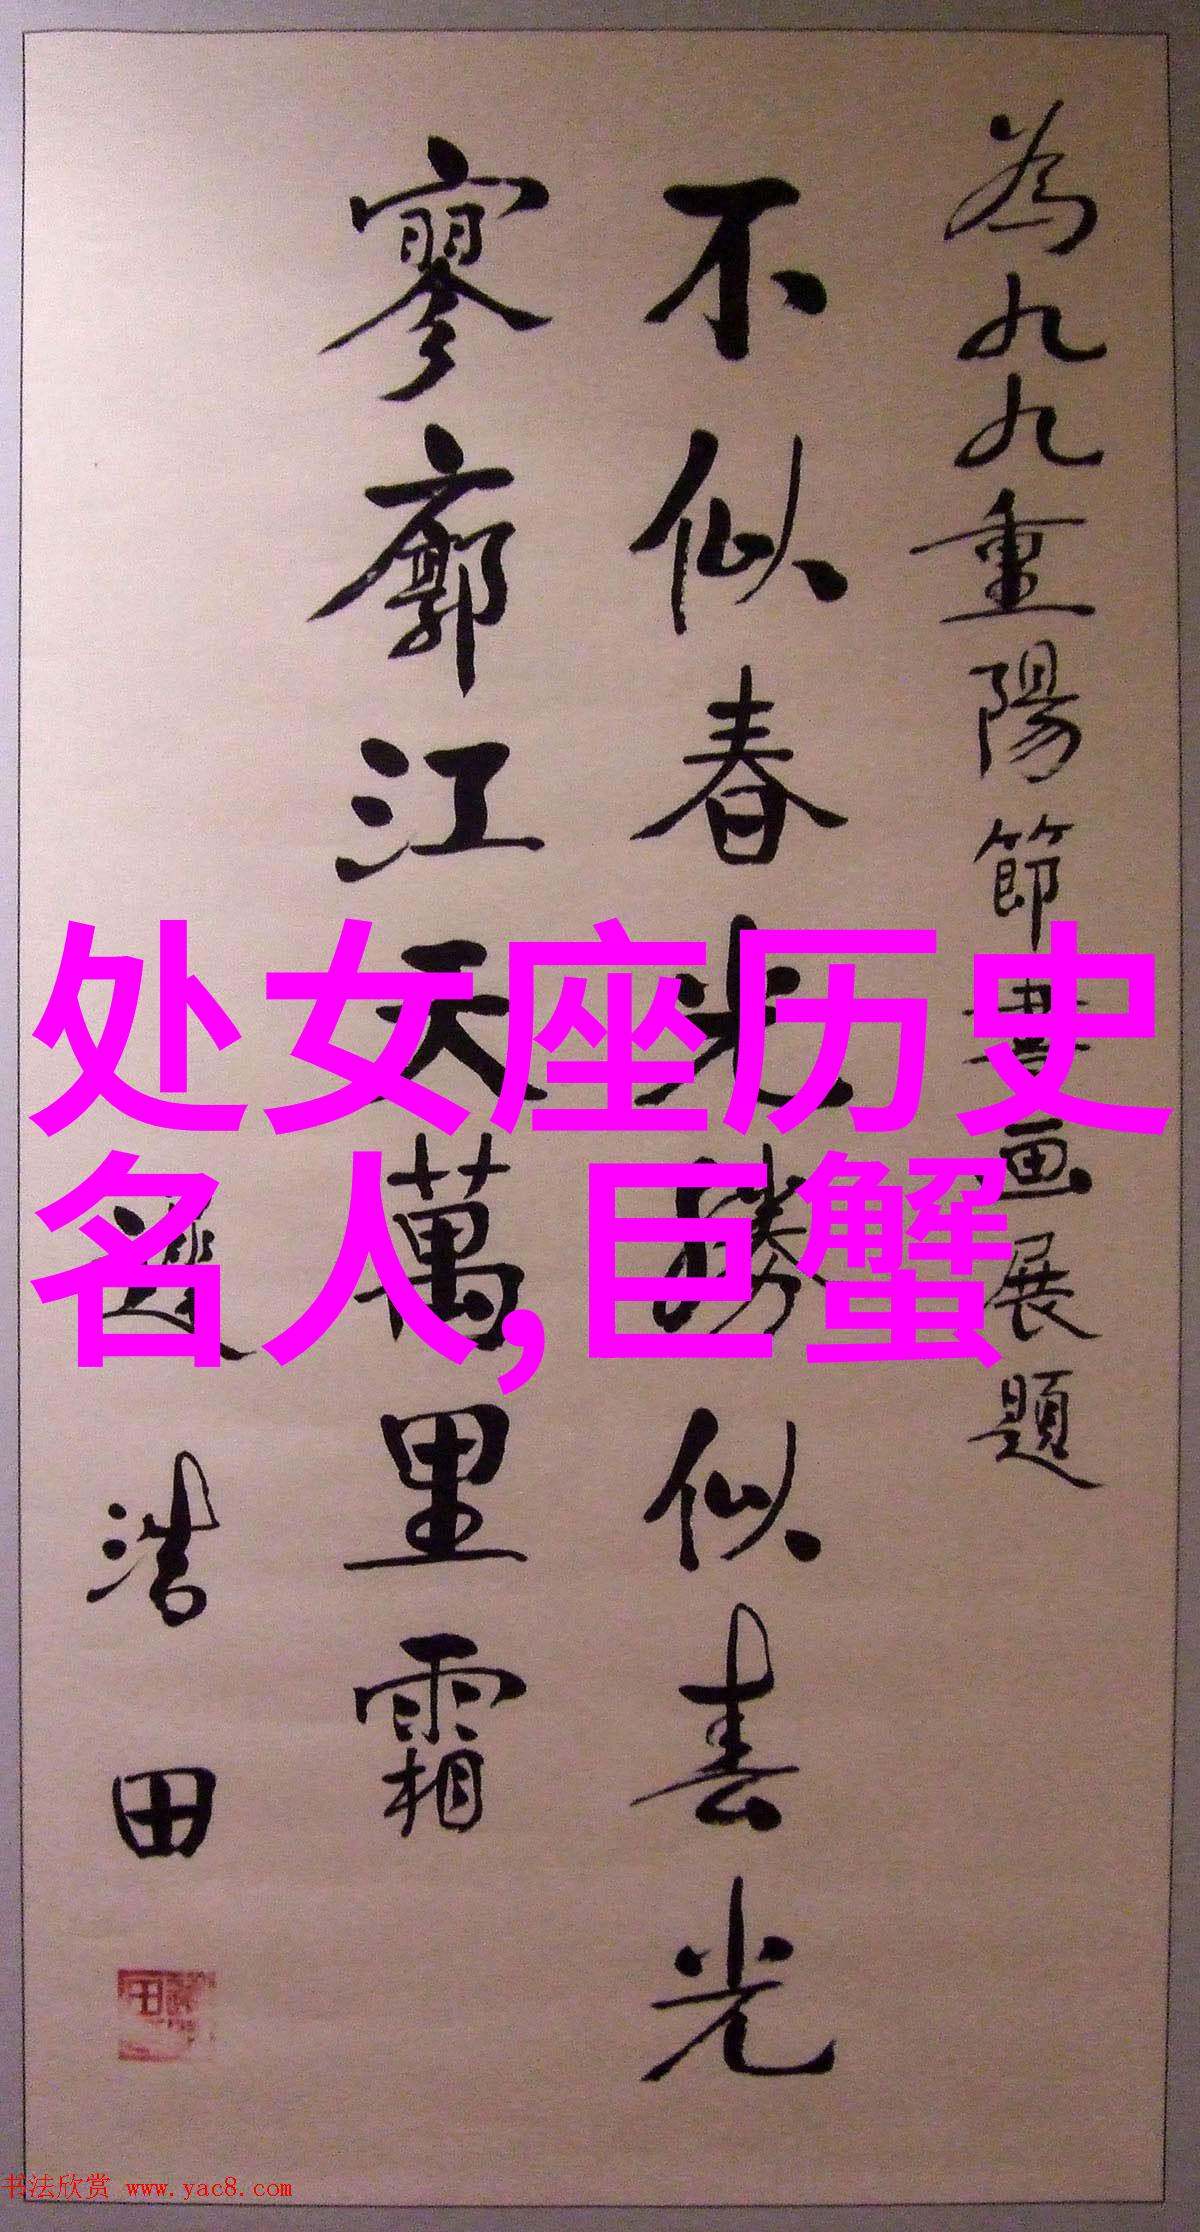 為九九重陽節書画展題
不似春光勝似春光
寥廓江天萬里霜
浩田
处女座历史
名人,巨蟹
书法欣赏 www.yac8.com